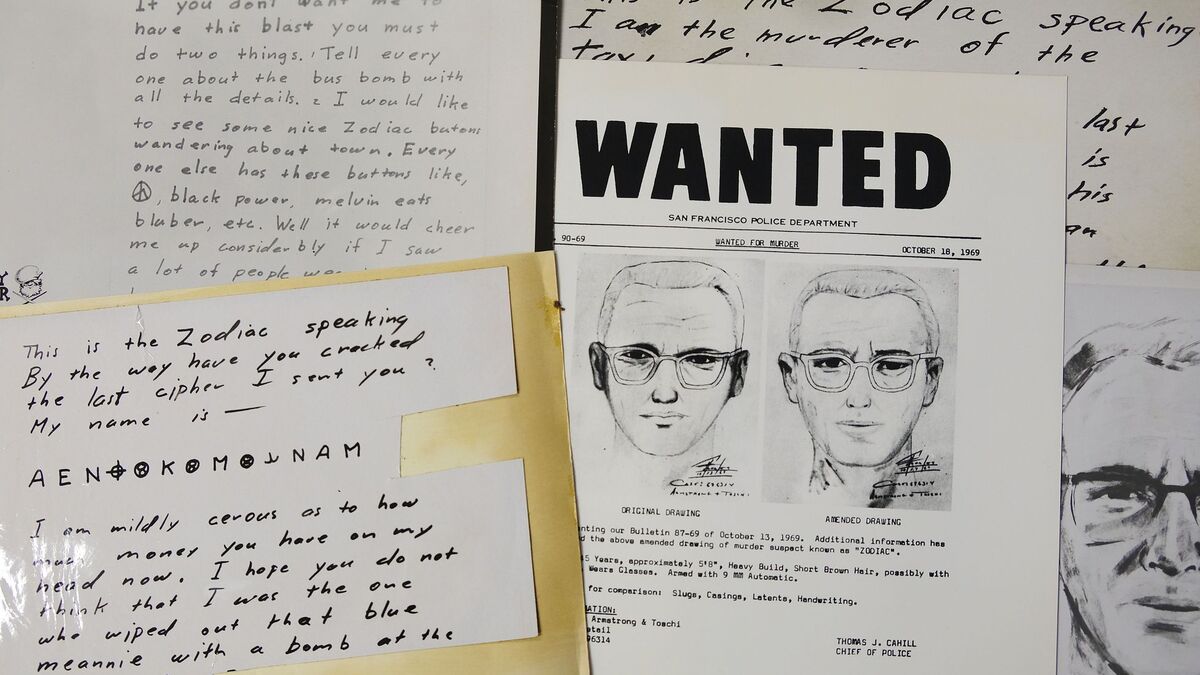 It you dont want me to
have this blast you must
do two things. 1 Tell every
one about the bus bomb with
all the details. 2 I would like
to see some nice Zodiac butons
wandering about town. Every
one else has these buttons like,
☮, black power, melvin eats
bluber, etc. Well it would cheer
me up considerbly if I saw
a lot of people
This is the Zodiac speaking
By the way have you cracked
the last cipher I sent you?
My name is —
A E N ⌖ ⊗ K ⊗ M ⊗ ⅃ N A M
I am mildly cerous as to how
much money you have on my
head now. I hope you do not
think that I was the one
who wiped out that blue
meannie with a bomb at the
is the Zodiac speaking
I am the murderer of the
last
is
his
WANTED
SAN FRANCISCO POLICE DEPARTMENT
90-69 WANTED FOR MURDER OCTOBER 18, 1969
ORIGINAL DRAWING AMENDED DRAWING
our Bulletin 87-69 of October 13, 1969. Additional information has
the above amended drawing of murder suspect known as "ZODIAC".
5 Years, approximately 5'8", Heavy Build, Short Brown Hair, possibly with
Wears Glasses. Armed with 9 MM Automatic.
for comparison: Slugs, Casings, Latents, Handwriting.
Armstrong & Toschi
96314
THOMAS J. CAHILL
CHIEF OF POLICE